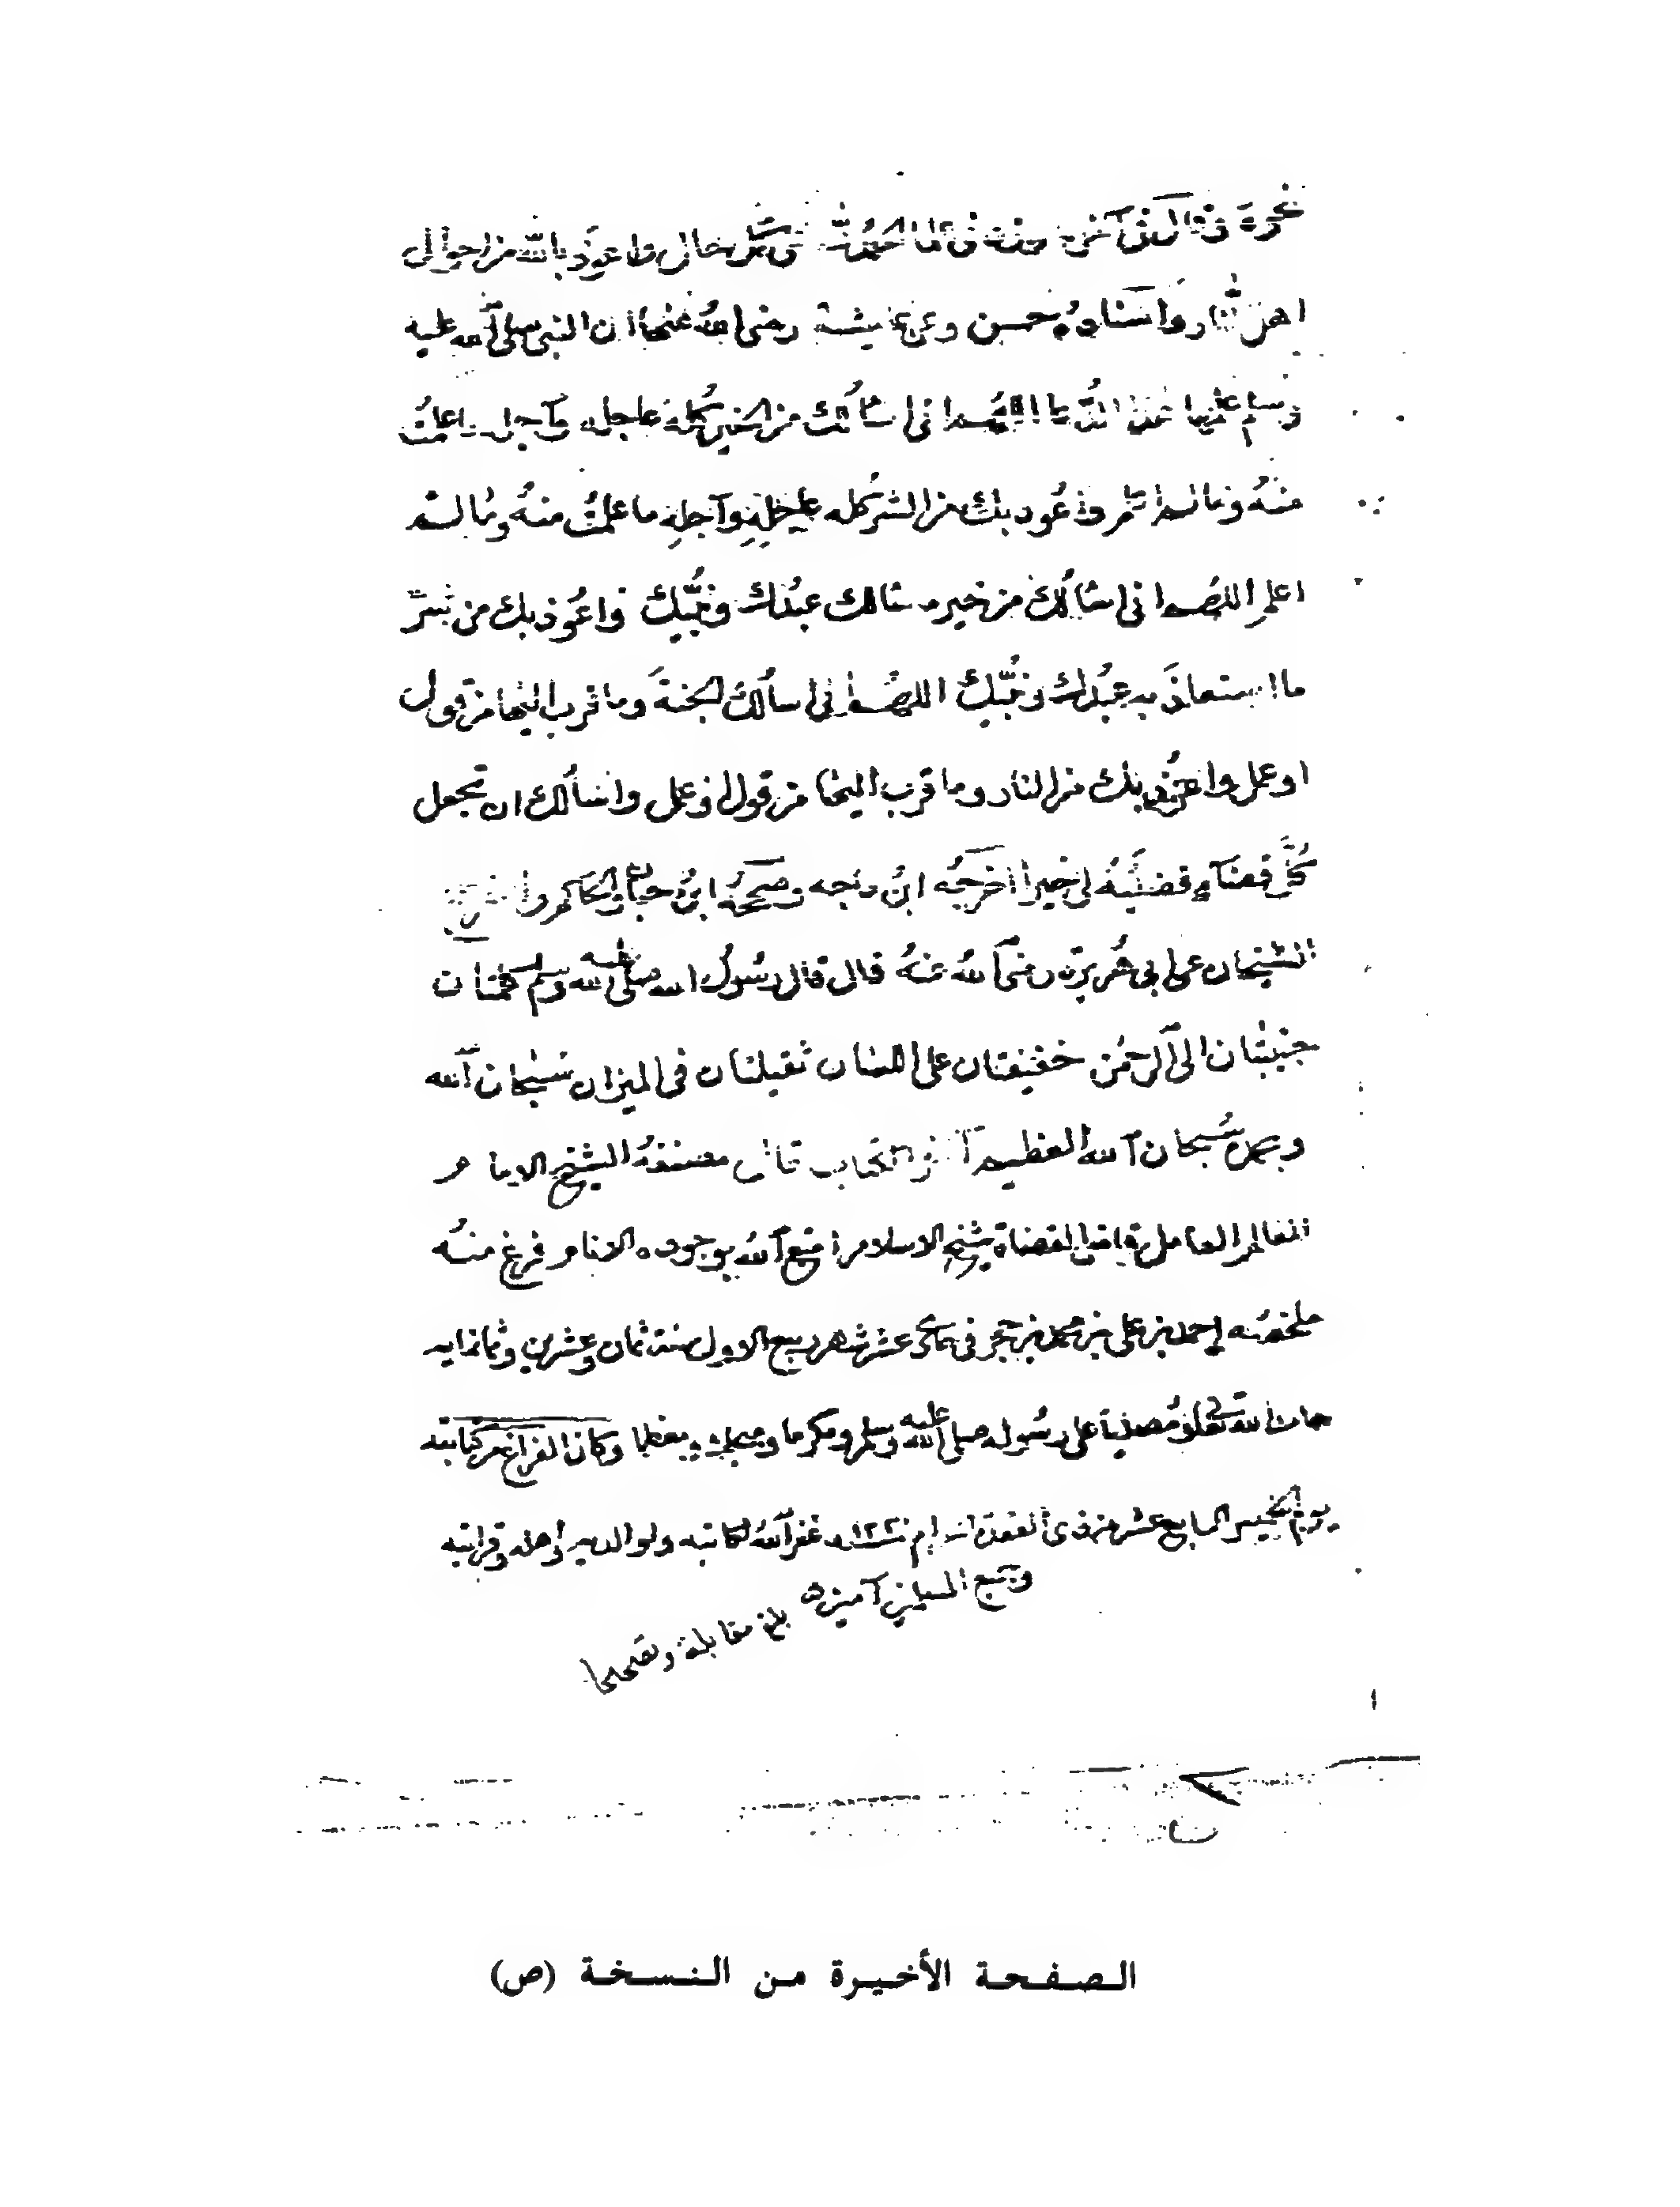 نحوه وقال في آخره الحمد لله على كل حال واعوذ بالله من احوال
اهل النار واسناده حسن وعن عايشة رضى الله عنها ان النبي صلى الله عليه
وسلم علمها هذا الدعا اللهم انى اسألك من الخير كله عاجله وآجله ما علمت
منه وما لم اعلم واعوذ بك من الشر كله عاجله وآجله ما علمت منه وما لم
اعلم اللهم انى اسألك من خير ما سالك عبدك ونبيك واعوذ بك من شر
ما استعاذ به عبدك ونبيك اللهم اني اسألك الجنة وما قرب اليها من قول
او عمل واعوذ بك من النار وما قرب اليها من قول او عمل واسألك ان تجعل
كل قضآء قضيته لي خيرا اخرجه ابن ماجه وصححه ابن حبان والحاكم واخرج
الشيخان عن ابي هريرة رضى الله عنه قال قال رسول الله صلى الله عليه وسلم كلمتان
حبيبتان الى الرحمن خفيفتان على اللسان ثقيلتان في الميزان سبحان الله
وبحمده سبحان الله العظيم آخر الكتاب قال مصنفه الشيخ الامام
العالم العامل قاضى القضاة شيخ الاسلام امتع الله بوجوده الانام فرغ منه
ملخصه احمد بن على بن محمد بن حجر في حادى عشر شهر ربيع الاول سنة ثمان وعشرين وثمانمايه
حامدا لله تعالى ومصليا على رسوله صلى الله عليه وسلم ومكرما ومبجلا ومعظما وكان الفراغ من كتابته
يوم الخميس السابع عشر من ذى القعدة الحرام غفر الله لكاتبه ولوالديه واهله وقرابته
وجميع المسلمين آمين
بلغ مقابلة وتصحيحا
الصفحة الأخيرة من النسخة (ص)